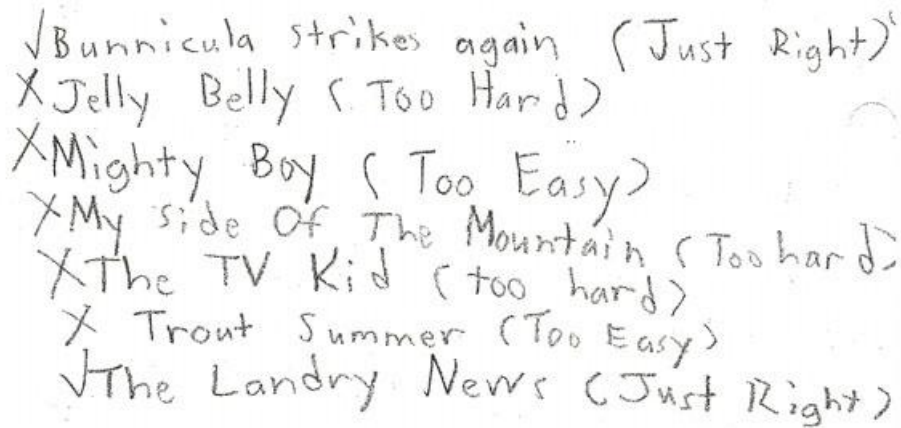 √Bunnicula strikes again (Just Right)
X Jelly Belly (Too Hard)
X Mighty Boy (Too Easy)
X My side Of The Mountain (Too hard)
X The TV Kid (too hard)
X Trout Summer (Too Easy)
√The Landry News (Just Right)